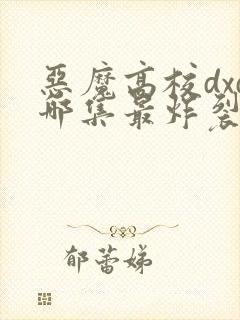 惡魔高校dxd
哪集最炸裂
郁蕾娣